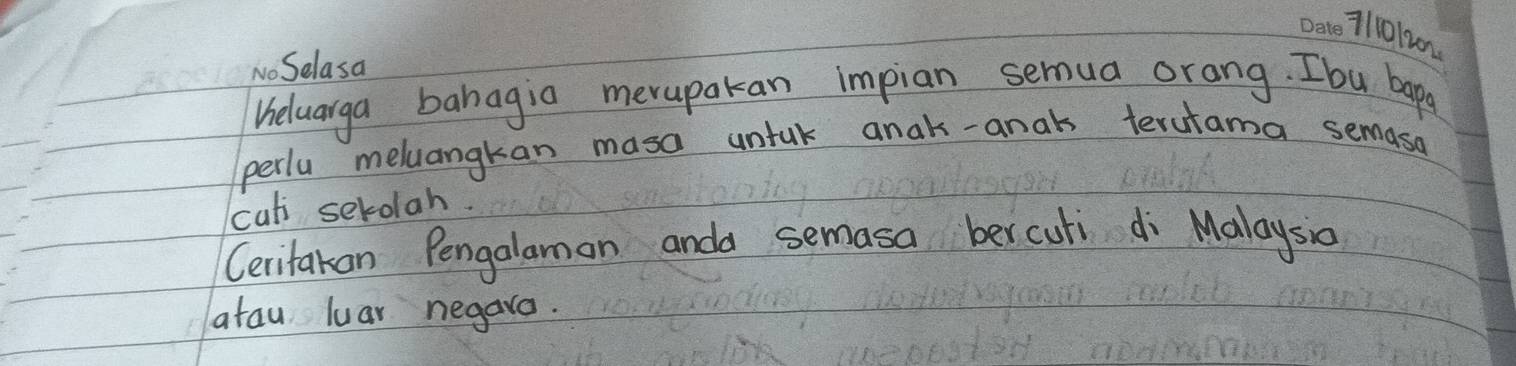 Date 7/10/202
No Selasa
Keluarga bahagia merupakan impian semua orang. Ibu bapa
perlu meluangkan masa untuk anak-anak terutama semasa
cuti sekolah.
Ceritakan Pengalaman anda semasa bercuti di Malaysia
atau luar negara.